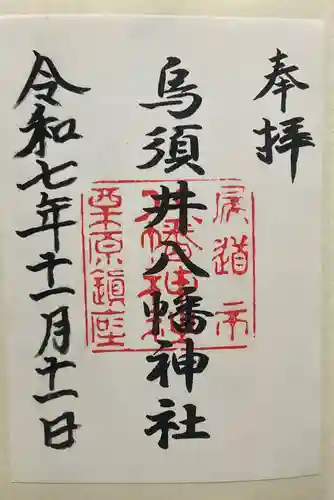 奉拝
烏須井八幡神社
令和七年十一月十一日
尾道市
八幡神社
栗原鎮座